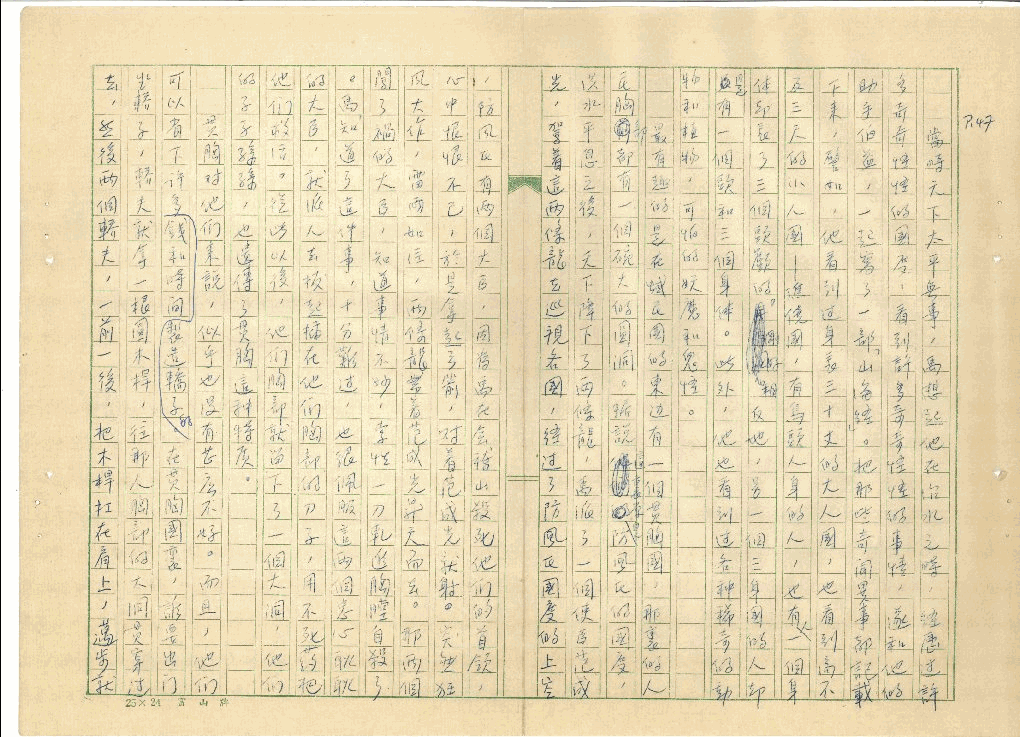 P.47
當時天下太平無事，禹想起他在治水之時，經歷過許
多奇奇怪怪的國度，看到許多奇奇怪怪的事情，遂和他的
助手伯益，一起寫了一部「山海經」。把那些奇聞異事都記載
下來，譬如，他看到過身長三十丈的大人國，也看到高不
五三尺的小人國——僬僥國，有鳥頭人身的人，也有人一個身
体卻長了三個頭顱的。相反地，另一個三身國的人卻
是有一個頭和三個身体。此外，他也看到過各种稀奇的動
物和植物，可怕的妖魔和鬼怪。
最有趣的是在臷民國的東边有一個貫胸國，那裏的人
民胸部都有一個碗大的圓洞。據說這防風氏的國度，
洪水平息之後，天下降下了兩條龍，禹派了一個使臣范成
光，駕着這兩條龍去巡視各國，經过了防風氏國度的上空
，防風氏有兩個大臣，因為禹在會稽山殺死他們的首領，
心中懷恨不已，於是拿起弓箭，对着范成光就射。突然狂
風大作，雷雨如注，兩條龍帶着范成光昇天而去。那兩個
闖了禍的大臣，知道事情不妙，拿性一刀軋進胸膛自殺了
。禹知道了這件事，十分難过，也很佩服這兩個忠心耿耿
的大臣，就派人去核起插在他們胸部的刀子，用不死药把
他們救活。從此以後，他們胸部就留下了一個大洞，他們
的子子孫孫，也遺傳了貫胸這种特质。
貫胸对他們來說，似乎也沒有甚么不好。而且，他們
可以省下許多錢和時间製造轎子的。在貫胸國裏，誰要出门
坐轎子，轎夫就拿一根圓木桿，往那人胸部的大洞貫穿过
去，然後两個轎夫，一前一後，把木桿扛在肩上，邁步就
25×24